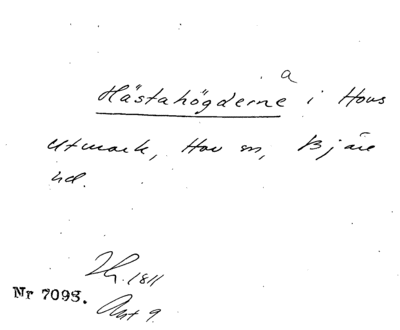 a
Hästahögderne i Hovs
Utmark, Hov sn, Bjäre
hd.
1811
Nr 7093.
Akt 9.